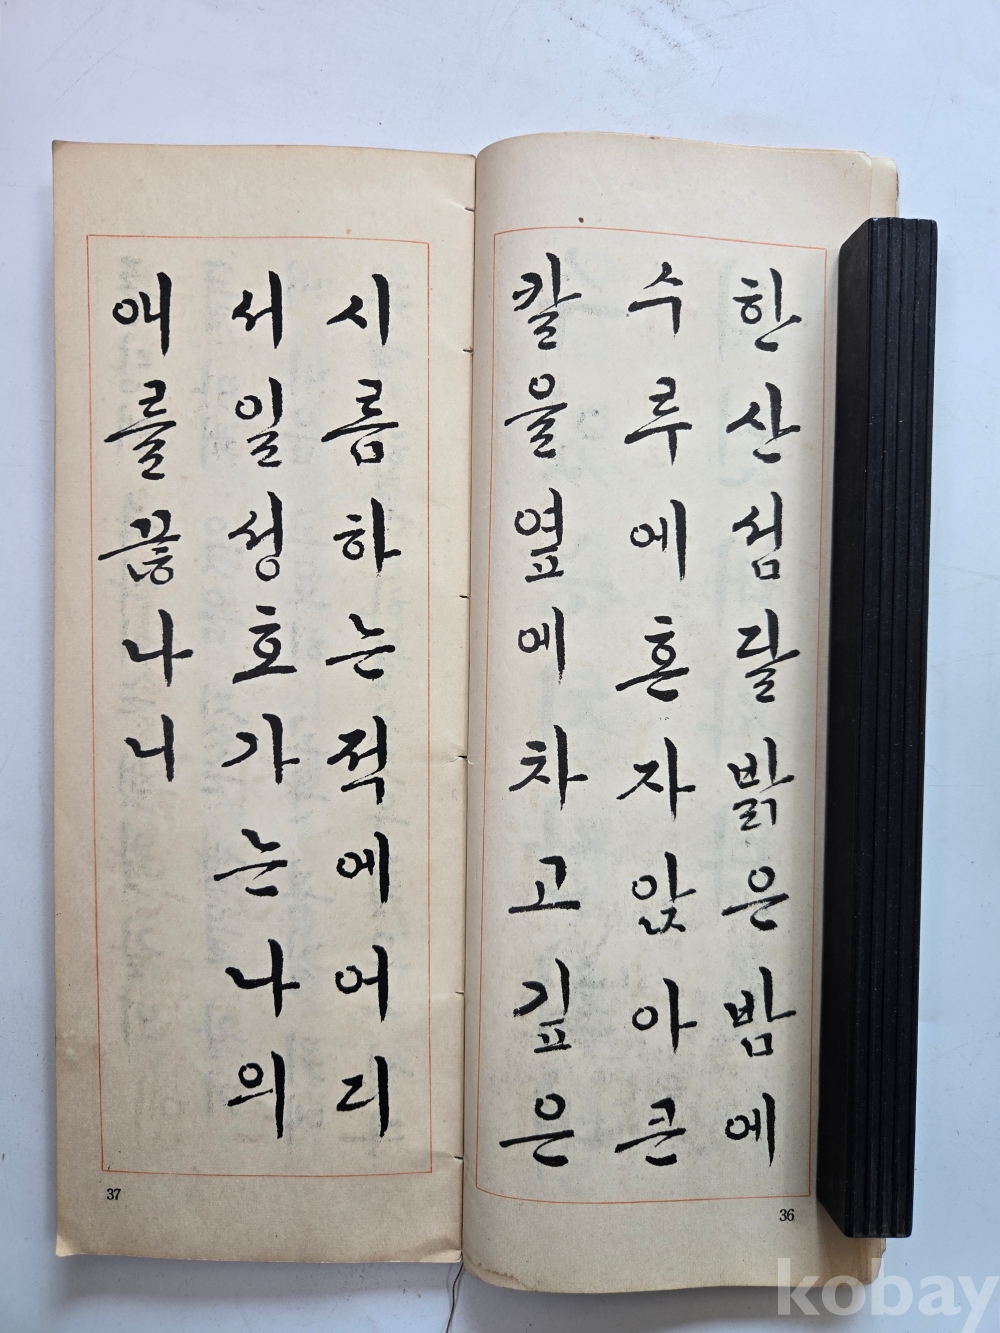 한산섬달밝은밤에
수루에혼자앉아큰
칼을옆에차고깊은
36
시름하는적에어디
서일성호가는나의
애를끊나니
37
kobay